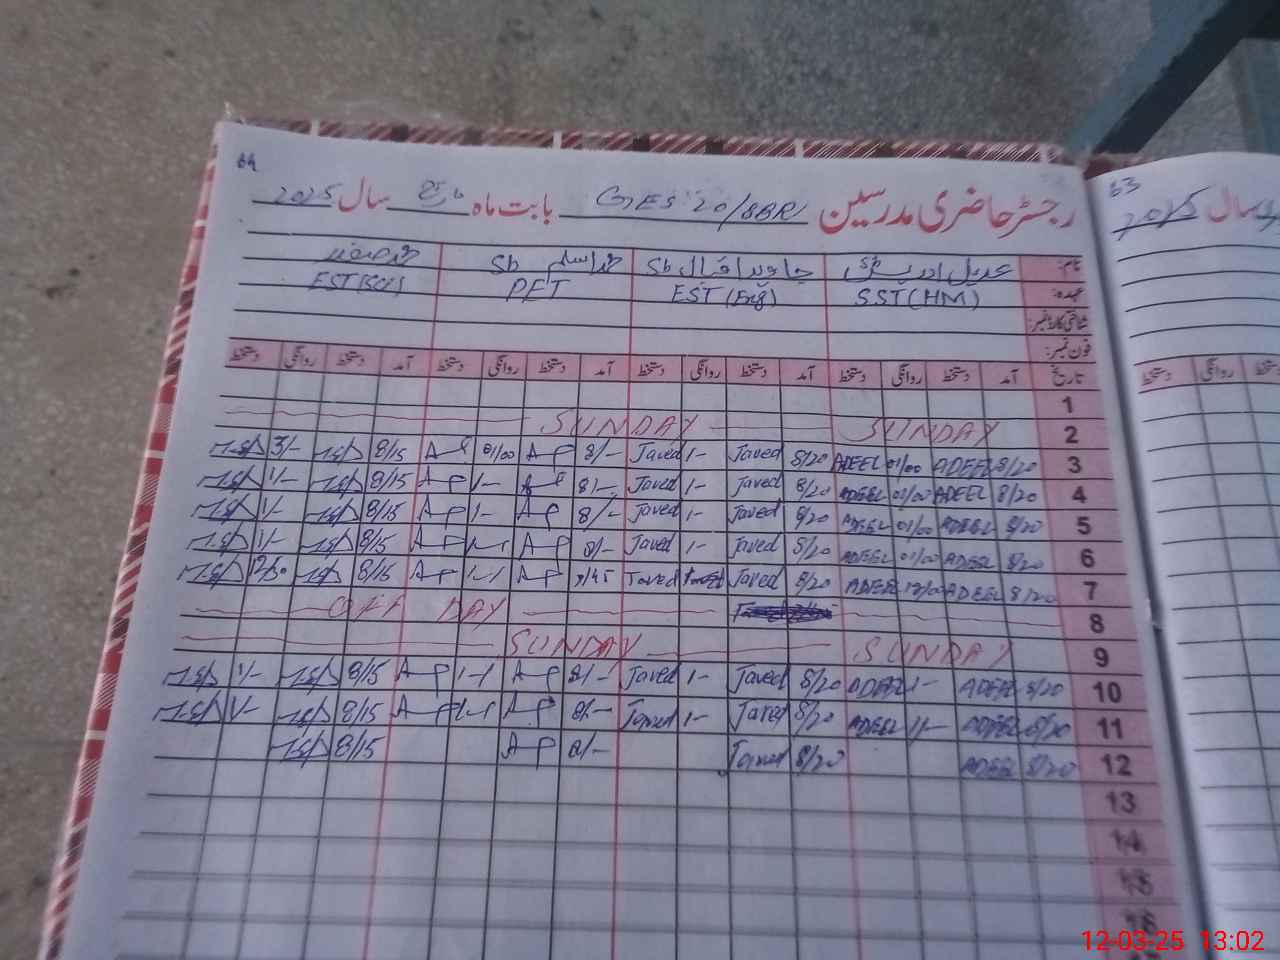 64
رجسٹر حاضری مدرسین GES 20/8BR بابت ماہ مارچ سال 2025
63
سال 2025
نام: عدیل ادریس sb جاوید اقبال Sb محمد اسلم Sb محمد صفدر
عہدہ: SST(HM) EST (Eng) PET EST(Sci)
شناختی کارڈ نمبر:
فون نمبر:
تاریخ آمد دستخط روانگی دستخط آمد دستخط روانگی دستخط آمد دستخط روانگی دستخط آمد دستخط روانگی دستخط
دستخط روانگی دستخط
1
2 SUNDAY SUNDAY
3 8/20 ADEEL 01/00 ADEEL 8/20 Javed 1- Javed 8/- 01/00 8/15 3/-
4 8/20 ADEEL 01/00 ADEEL 8/20 Javed 1- Javed 8/- 1- 8/15 1/-
5 8/20 ADEEL 01/00 ADEEL 8/20 Javed 1- Javed 8/- 1- 8/15 1/-
6 8/20 ADEEL 01/00 ADEEL 8/20 Javed 1- Javed 8/- 8/15 1/-
7 8/20 ADEEL 12/00 ADEEL 8/20 Javed Javed 8/15
8 OFF DAY
9 SUNDAY SUNDAY
10 8/20 ADEEL 1- ADEEL 8/20 Javed 1- Javed 8/- 8/15 1/-
11 8/20 ADEEL 1- ADEEL 8/20 Javed 1- Javed 8/- 8/15 1/-
12 8/20 ADEEL 8/20 Javed 8/- 8/15
13
14
15
16
12-03-25 13:02